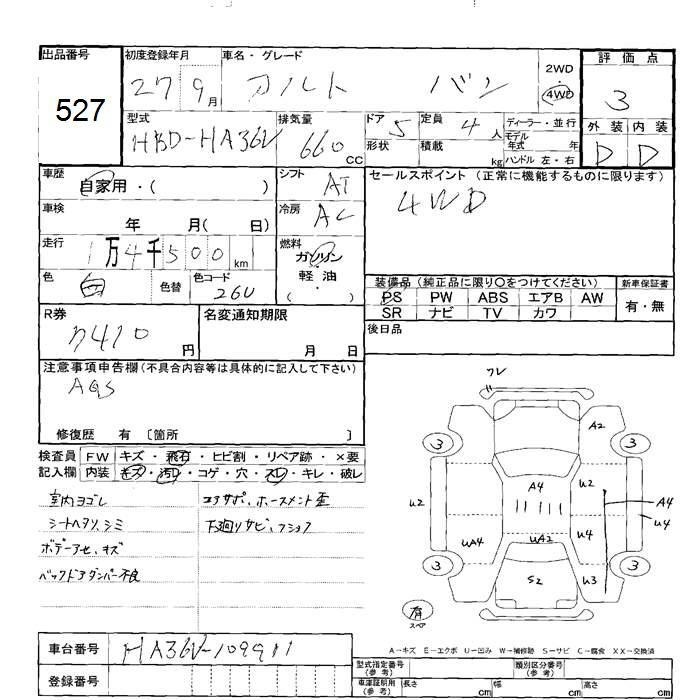 出品番号
527
初度登録年月
27 9月
車名・グレード
アルト バン
2WD
4WD
評価点
3
外装 内装
D D
型式
HBD-HA36V
排気量
660 CC
ドア
5
定員
4 人
形状
積載
kg
ディーラー・並行
モデル
年式 年
ハンドル 左・右
車歴
自家用・( )
シフト
AT
セールスポイント (正常に機能するものに限ります)
4WD
車検
年 月( 日)
冷房
AC
走行
1万4千500km
燃料
ガソリン
軽・油
( )
色
白
色替
色コード
26U
装備品 (純正品に限り〇をつけてください)
PS PW ABS エアB AW
SR ナビ TV カワ
新車保証書
有・無
R券
7410円
名変通知期限
月 日
後日品
注意事項申告欄(不具合内容等は具体的に記入して下さい)
AGS
修復歴 有 〔箇所 〕
検査員
記入欄
FW キズ・飛石・ヒビ割・リペア跡・×要
内装 キズ・汚れ・コゲ・穴・スレ・キレ・破レ
室内ヨゴレ
シートヘタリ、シミ
ボデーアセ、キズ
バックドアダンパー不良
コアサポ、ホースメント歪
下廻りサビ、
ワレ
3
A2
3
A4
U2
U2
A4
U4
UA4
UA2
U4
3
S2
U3
3
有
スペア
A→キズ E→エクボ U→凹み W→補修跡 S→サビ C→腐食 XX→交換済
車台番号
HA36V-109911
登録番号
型式指定番号
(参考)
類別区分番号
(参考)
車庫証明用
(参考)
長さ cm
幅 cm
高さ cm